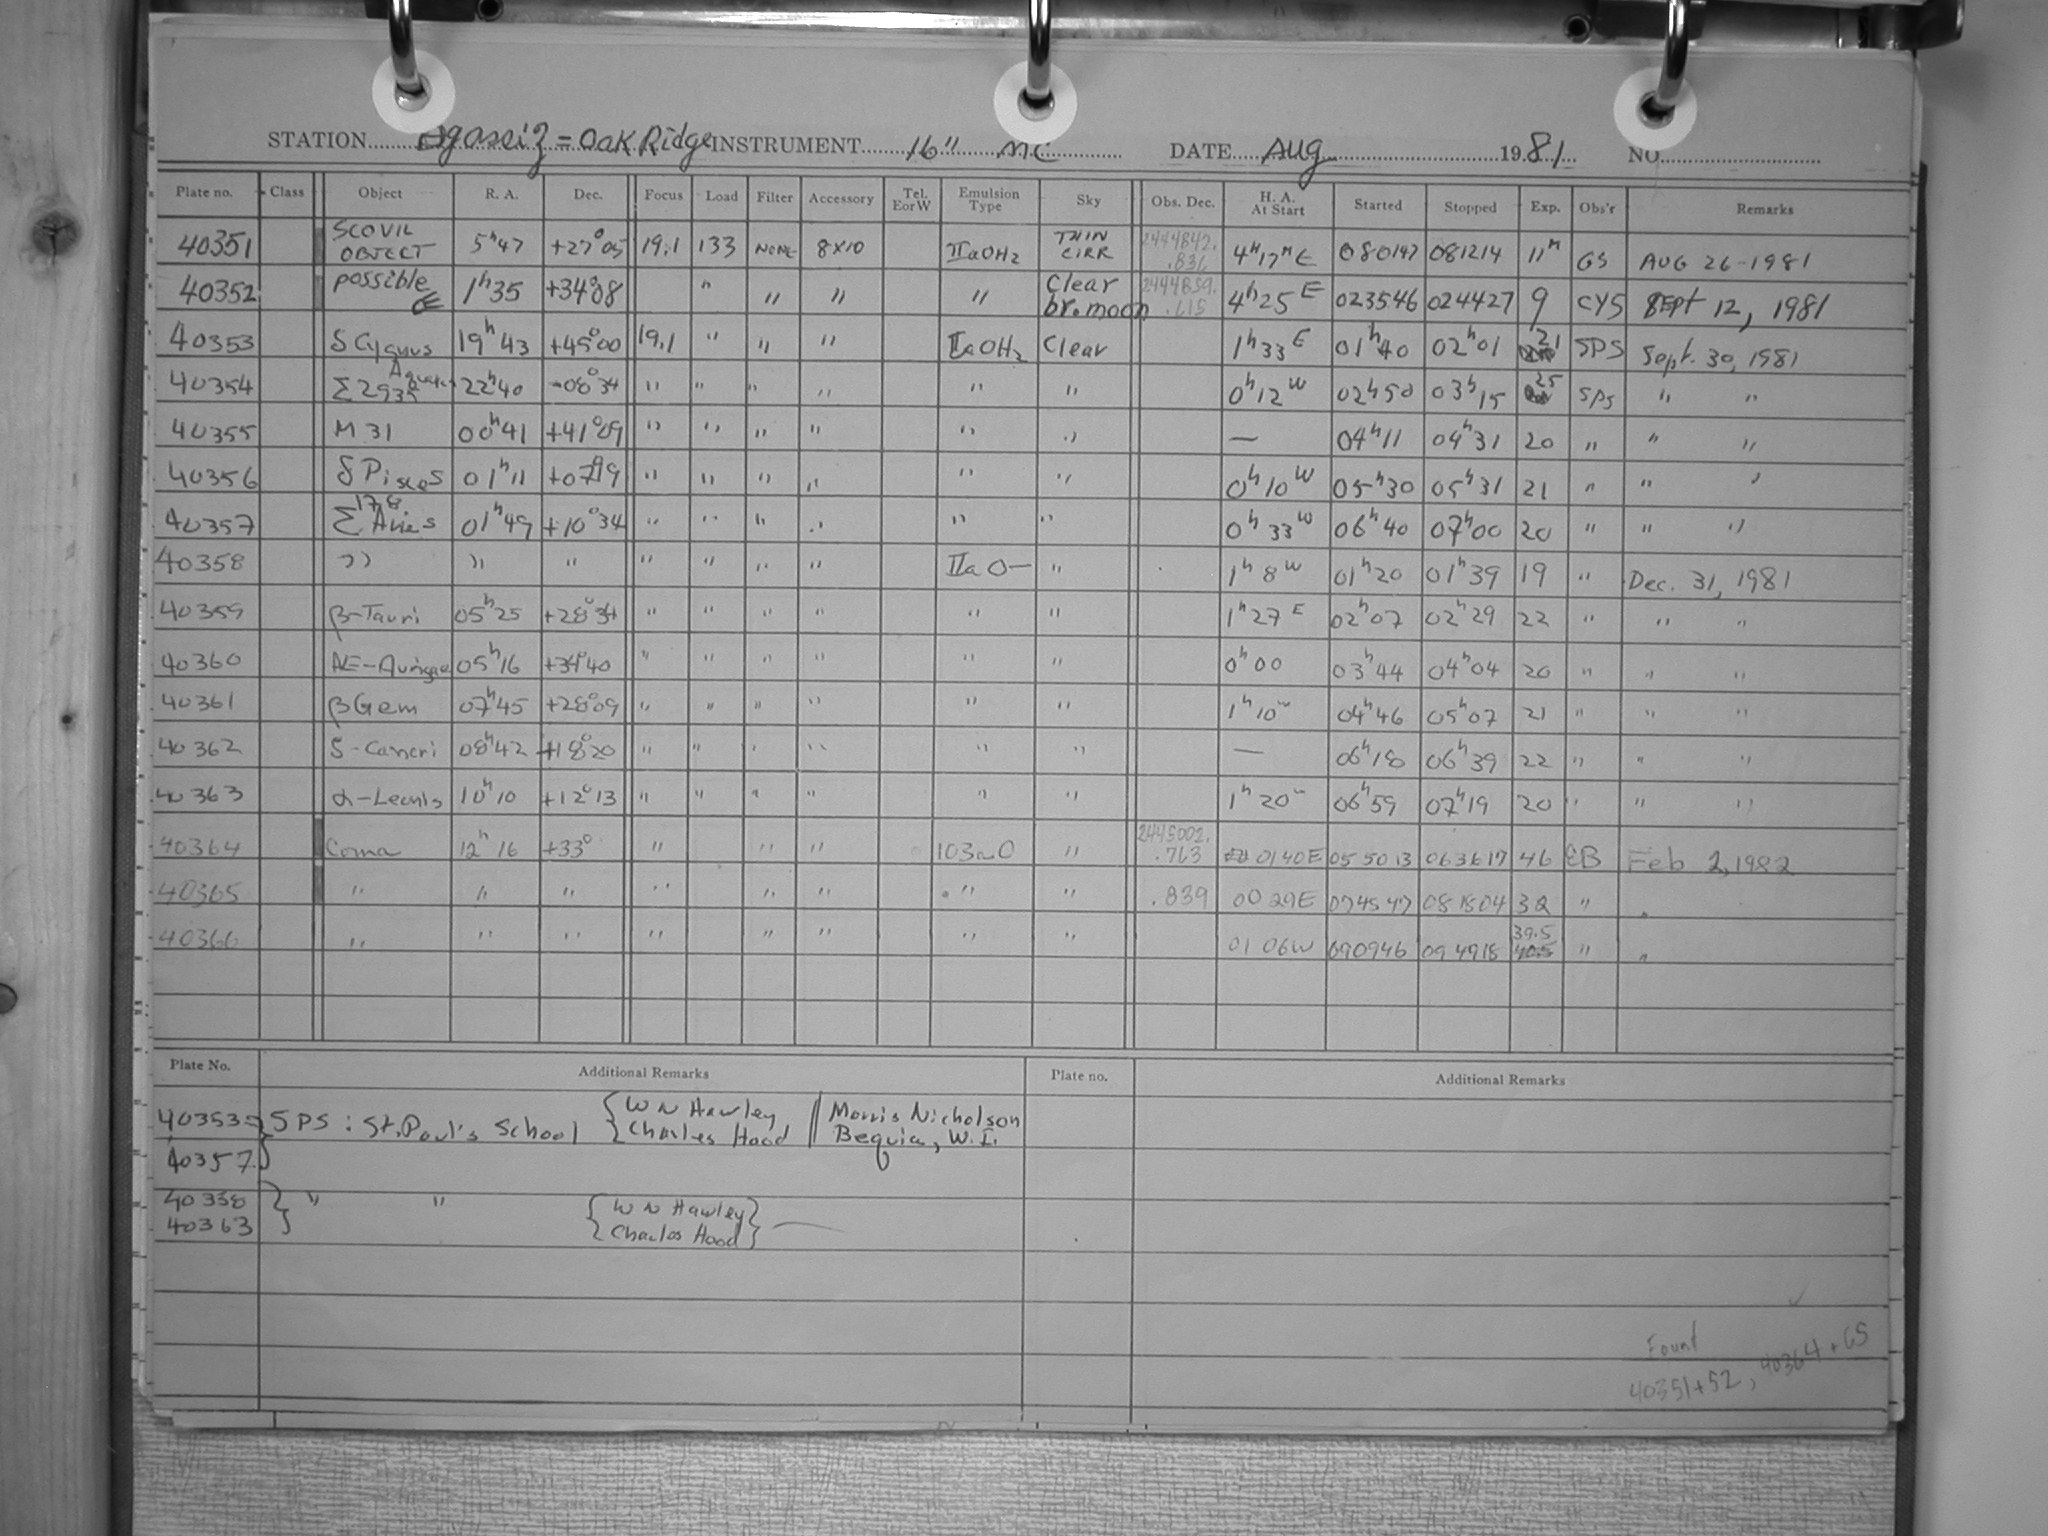 STATION Agassiz = Oak Ridge INSTRUMENT 16" MC DATE Aug 1981 NO.
Plate no. Class Object R. A. Dec. Focus Load Filter Accessory Tel. E or W Emulsion Type Sky Obs. Dec. H. A. At Start Started Stopped Exp. Obs'r Remarks
40351 SCOVIL OBJECT 5h47 +27°05 19.1 133 NONE 8X10 IIaOH2 THIN CIRR 2444842. .831 4H17M E 080147 081214 11M GS AUG 26-1981
40352 possible 1h35 +34°08 " " " " Clear br. moon 2444859. .615 4h25 E 023546 024427 9 CYS SEPt 12, 1981
40353 δ Cygnus 19h43 +45°00 19.1 " " " IIaOH2 Clear 1h33 E 01h40 02h01 21 SPS Sept. 30, 1981
40354 Σ2935 22h40 -08°34 " " " " " " 0h12 W 02h50 03h15 25 SPS " "
40355 M 31 00h41 +41°09 " " " " " " — 04h11 04h31 20 " " "
40356 δ Pisces 01h11 +07°19 " " " " " " 0h10 W 05h30 05h31 21 " " "
40357 Σ178. Aries 01h49 +10°34 " " " " " " 0h33 W 06h40 07h00 20 " " "
40358 " " " " " " " IIaO— " 1h8 W 01h20 01h39 19 " Dec. 31, 1981
40359 β-Tauri 05h25 +28°34 " " " " " " 1h27 E 02h07 02h29 22 " " "
40360 AE-Aurigae 05h16 +34°40 " " " " " " 0h00 03h44 04h04 20 " " "
40361 β Gem 07h45 +28°09 " " " " " " 1h10 w 04h46 05h07 21 " " "
40362 δ-Cancri 08h42 +18°20 " " " " " " — 06h18 06h39 22 " " "
40363 α-Leonis 10h10 +12°13 " " " " " " 1h20 w 06h59 07h19 20 " " "
40364 Coma 12h16 +33° " " " 103aO " 2445002. .763 0140E 055013 063617 46 EB Feb 2, 1982
40365 " " " " " " " " .839 0029E 074547 081804 32 " "
40366 " " " " " " " " 0106W 090946 094918 39.5 " "
Plate No. Additional Remarks Plate no. Additional Remarks
40353- } SPS : St. Paul's School { W N Hawley Charles Hood || Morris Nicholson Bequia, W.I.
40357
40338 } " " { W N Hawley }
40363 Charles Hood
Found
40351+52, 40364+65